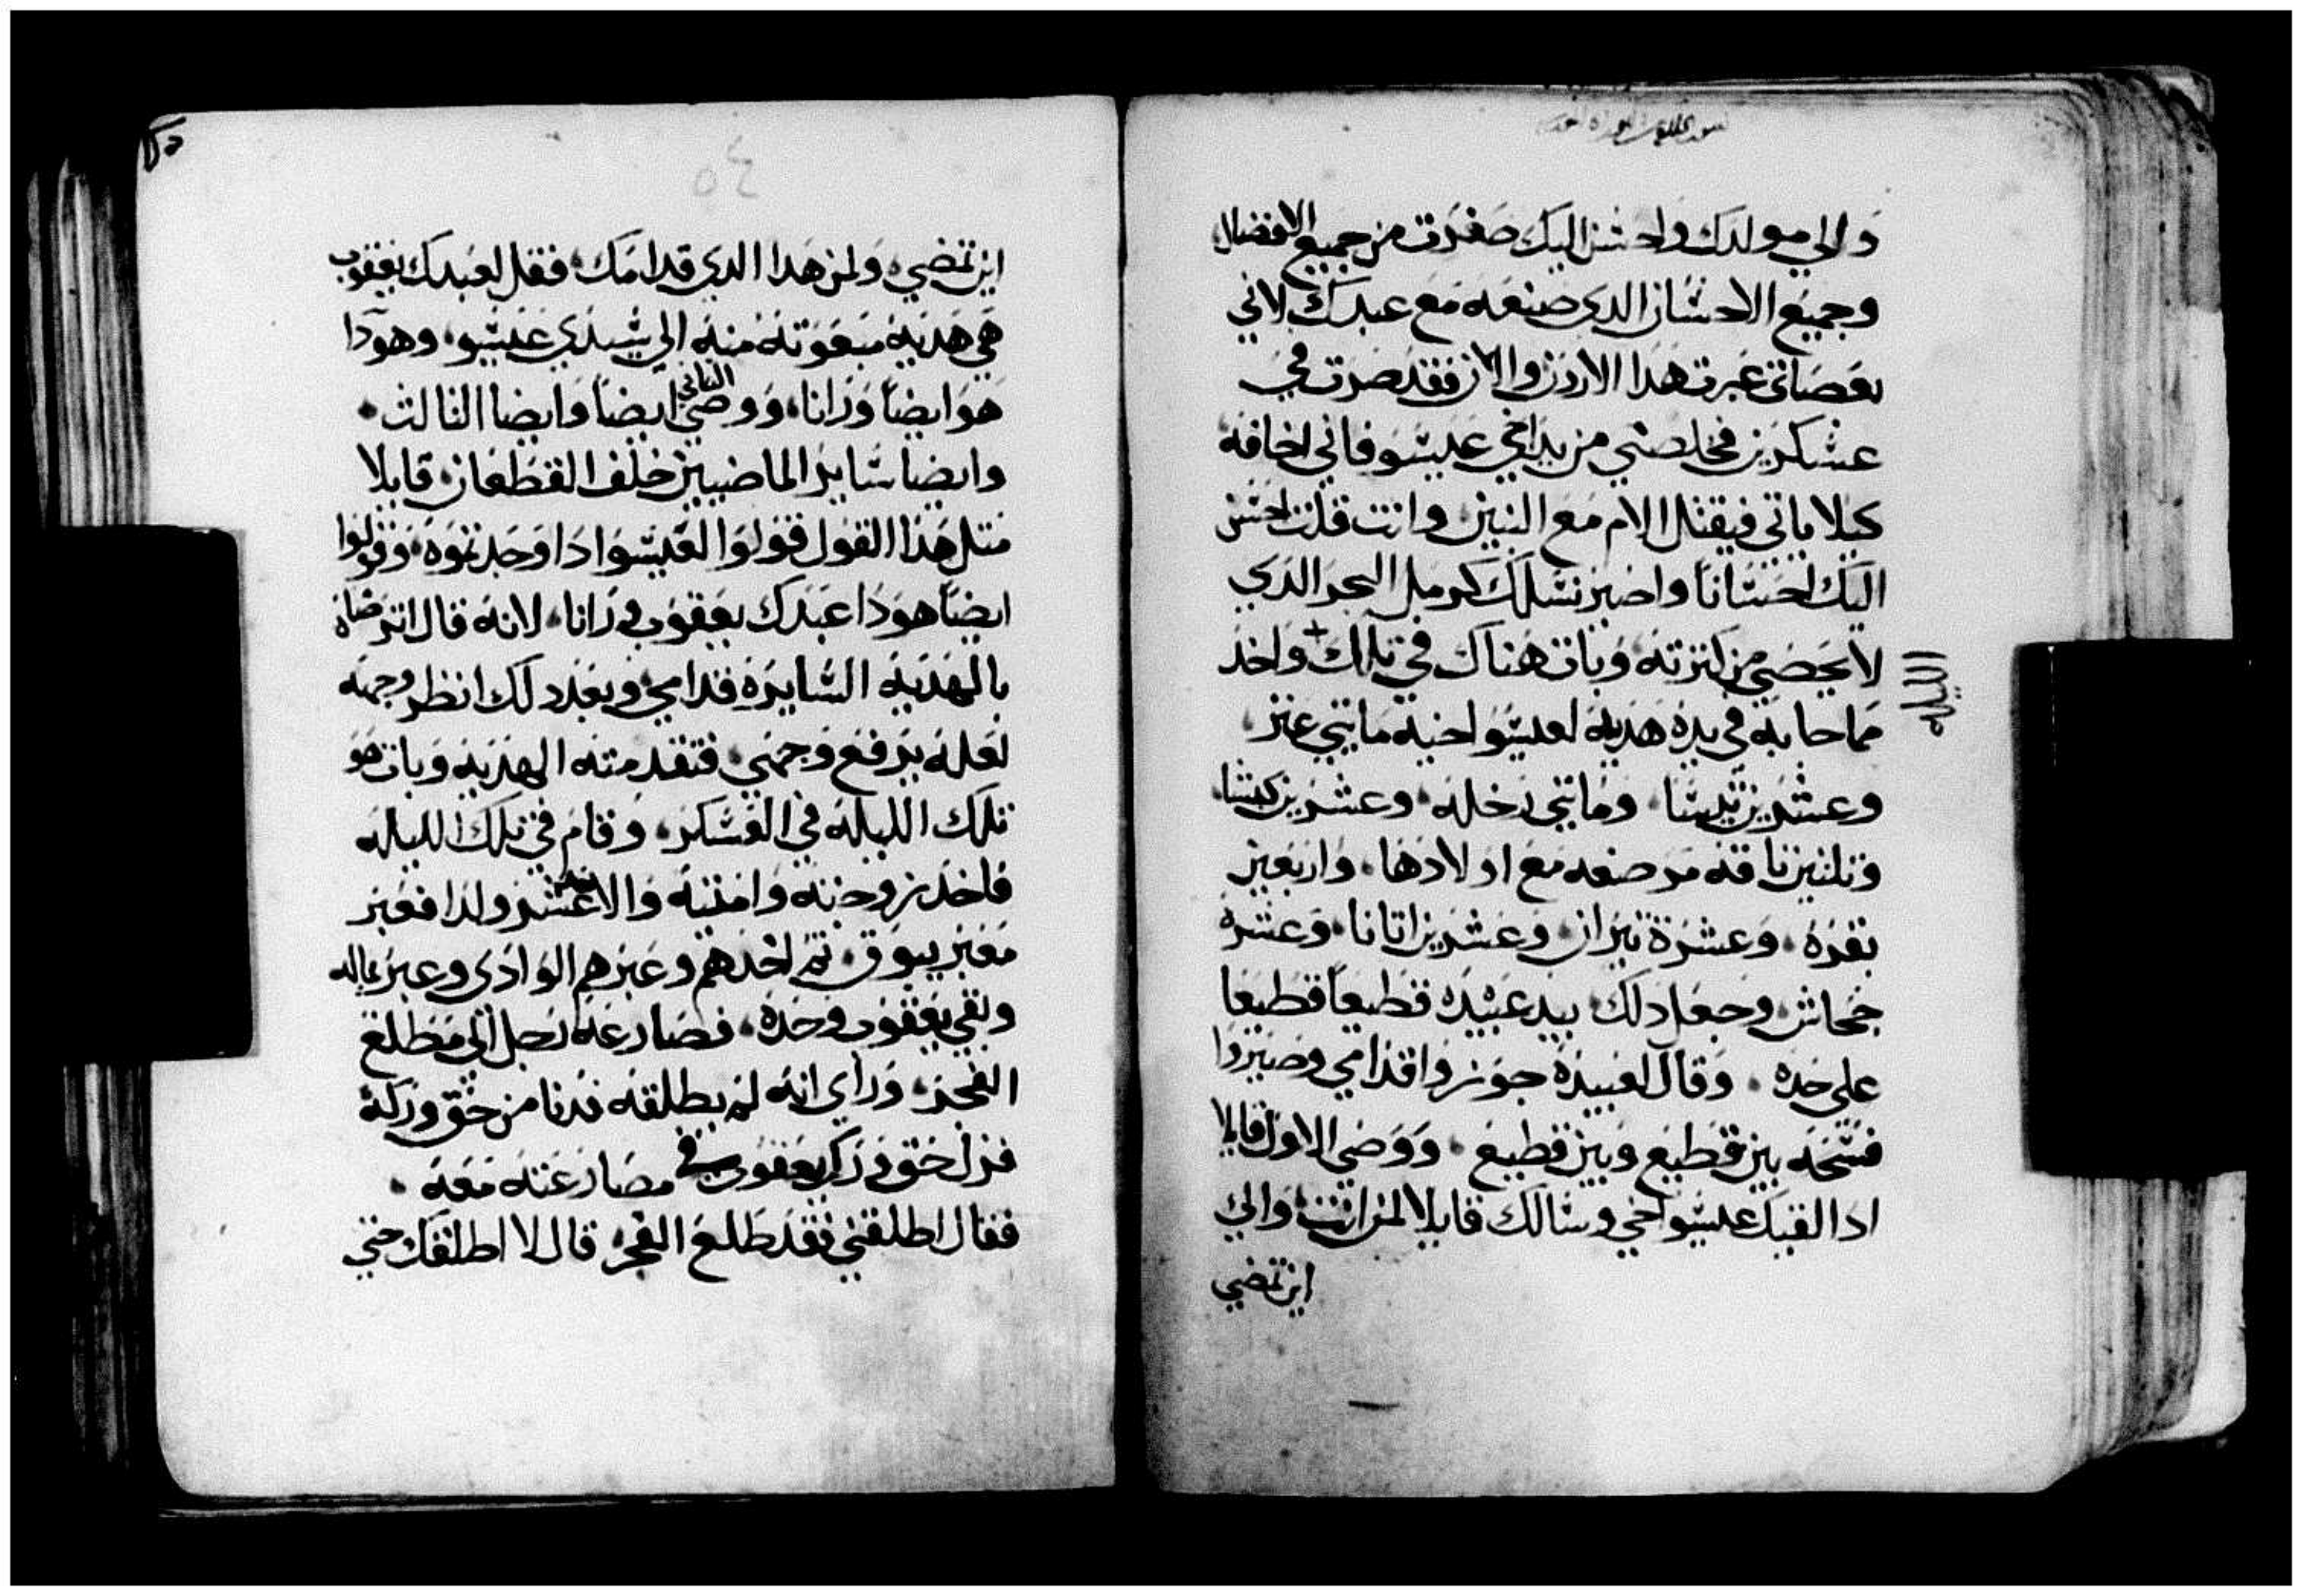 والي مولدك واحسن اليك صغرت من جميع الافضال
وجميع الاحسان الدى صنعه مع عبدك لاني
بعصاتى عبرت هدا الاردن والان فقد صرت في
عسكرين فخلصني من يد اخي عيسو فاني اخافه
كيلا ياتي فيقتل الام مع البنين وانت قلت احسن
اليك احسانا واصير نسلك كرمل البحر الدي
لا يحصي من كترته وبات هناك في تلك + واخد
الليله
مما جا به في يده هديه لعيسو اخيه مايتي عنز
وعشرين تيسا ومايتي رخله وعشرين كبشا
وتلتين ناقه مرضعه مع اولادها واربعين
بقره وعشرة تيران وعشرين اتانا وعشره
جحاش وجعل دلك بيد عبيده قطيعا قطيعا
على حده وقال لعبيده جوزوا قدامي وصيروا
فسحه بين قطيع وبين قطيع ووصي الاول قايلا
ادا لقيك عيسو اخي وسالك قايلا لمن انت والى
اين تمضي
٥٤
اين تمضي ولمن هدا الدي قدامك فقل لعبدك يعقوب
هي هديه مبعوته منه الي سيدي عيسو وهودا
هو ايضا ورانا ووصي الثاني ايضا وايضا الثالث
وايضا ساير الماضيين خلف القطعان قايلا
متل هدا القول قولوا لعيسو ادا وجدتموه وقولوا
ايضا هودا عبدك يعقوب ورانا لانه قال اترضاه
بالهديه السايره قدامي وبعد دلك انظر وجهه
لعله يرفع وجهي فتقدمته الهديه وبات هو
تلك الليله في العسكر وقام في تلك الليله
فاخد زوجتيه وامتيه والاحد عشر ولدا فعبر
معبر يبوق تم اخدهم وعبرهم الوادى وعبر ماله
وبقي يعقوب وحده فصارعه رجل الي مطلع
الفجر وراي انه لم يطلقه فدنا من حق وركه
فزل حق ورك يعقوب في مصارعته معه
فقال اطلقني فقد طلع الفجر قال لا اطلقك حتي